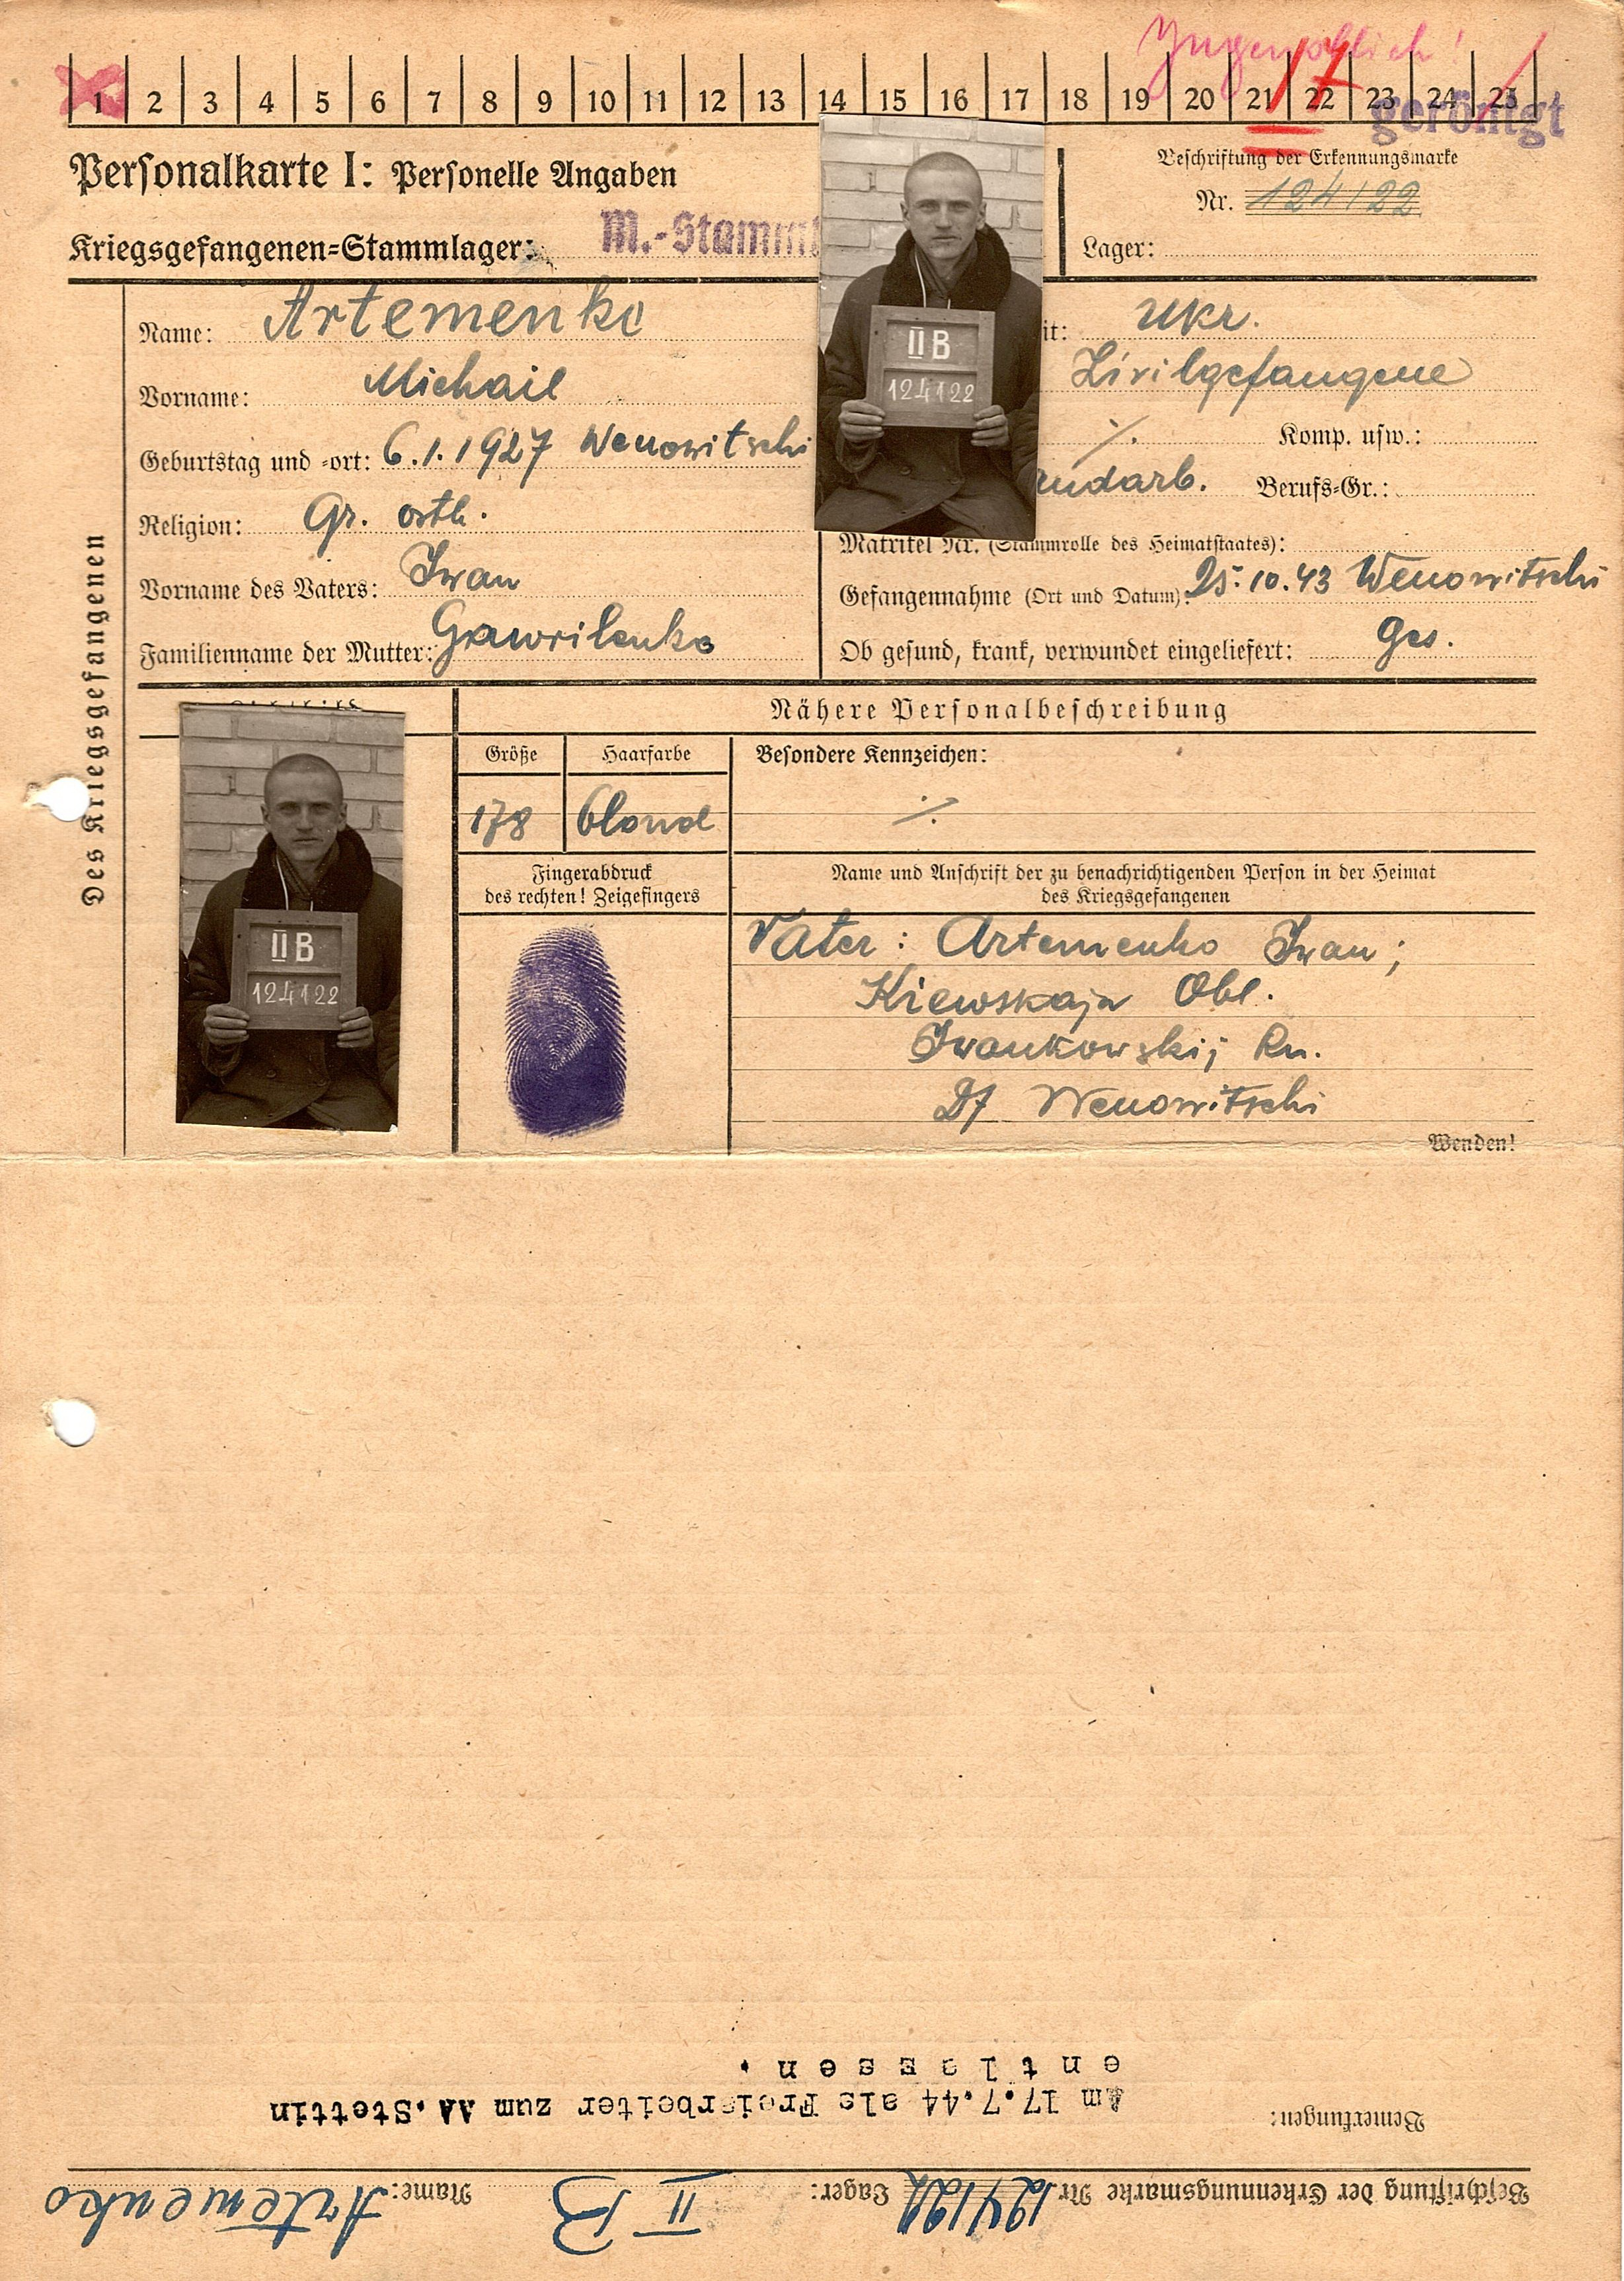 Jugendlich!
17
1 2 3 4 5 6 7 8 9 10 11 12 13 14 15 16 17 18 19 20 21 22 23 24 25
geröntgt
Personalkarte I: Personelle Angaben
Kriegsgefangenen=Stammlager: M.-Stamml
Beschriftung der Erkennungsmarke
Nr. 124122
Lager:
Des Kriegsgefangenen
Name: Artemenko
Vorname: Michail
Geburtstag und =ort: 6.1.1927 Wenowitschi
Religion: Gr. orth.
Vorname des Vaters: Iwan
Familienname der Mutter: Gawrilenko
II B
124122
it: Ukr.
Zivilgefangene
./. Komp. usw.:
andarb. Berufs=Gr.:
Matrikel Nr. (Stammrolle des Heimatstaates):
Gefangennahme (Ort und Datum): 25.10.43 Wenowitschi
Ob gesund, krank, verwundet eingeliefert: Ges.
II B
124122
Nähere Personalbeschreibung
Größe Haarfarbe Besondere Kennzeichen:
178 blond ./.
Fingerabdruck
des rechten! Zeigefingers
Name und Anschrift der zu benachrichtigenden Person in der Heimat
des Kriegsgefangenen
Vater: Artemenko Iwan;
Kiewskaja Obl.
Iwankowskij Rn.
Df Wenowitschi
Wenden!
Beschriftung der Erkennungsmarke Nr 124122 Lager: II B Name: Artemenko
Bemerkungen:
Am 17.7.44 als Freiarbeiter zum AA. Stettin
entlassen.